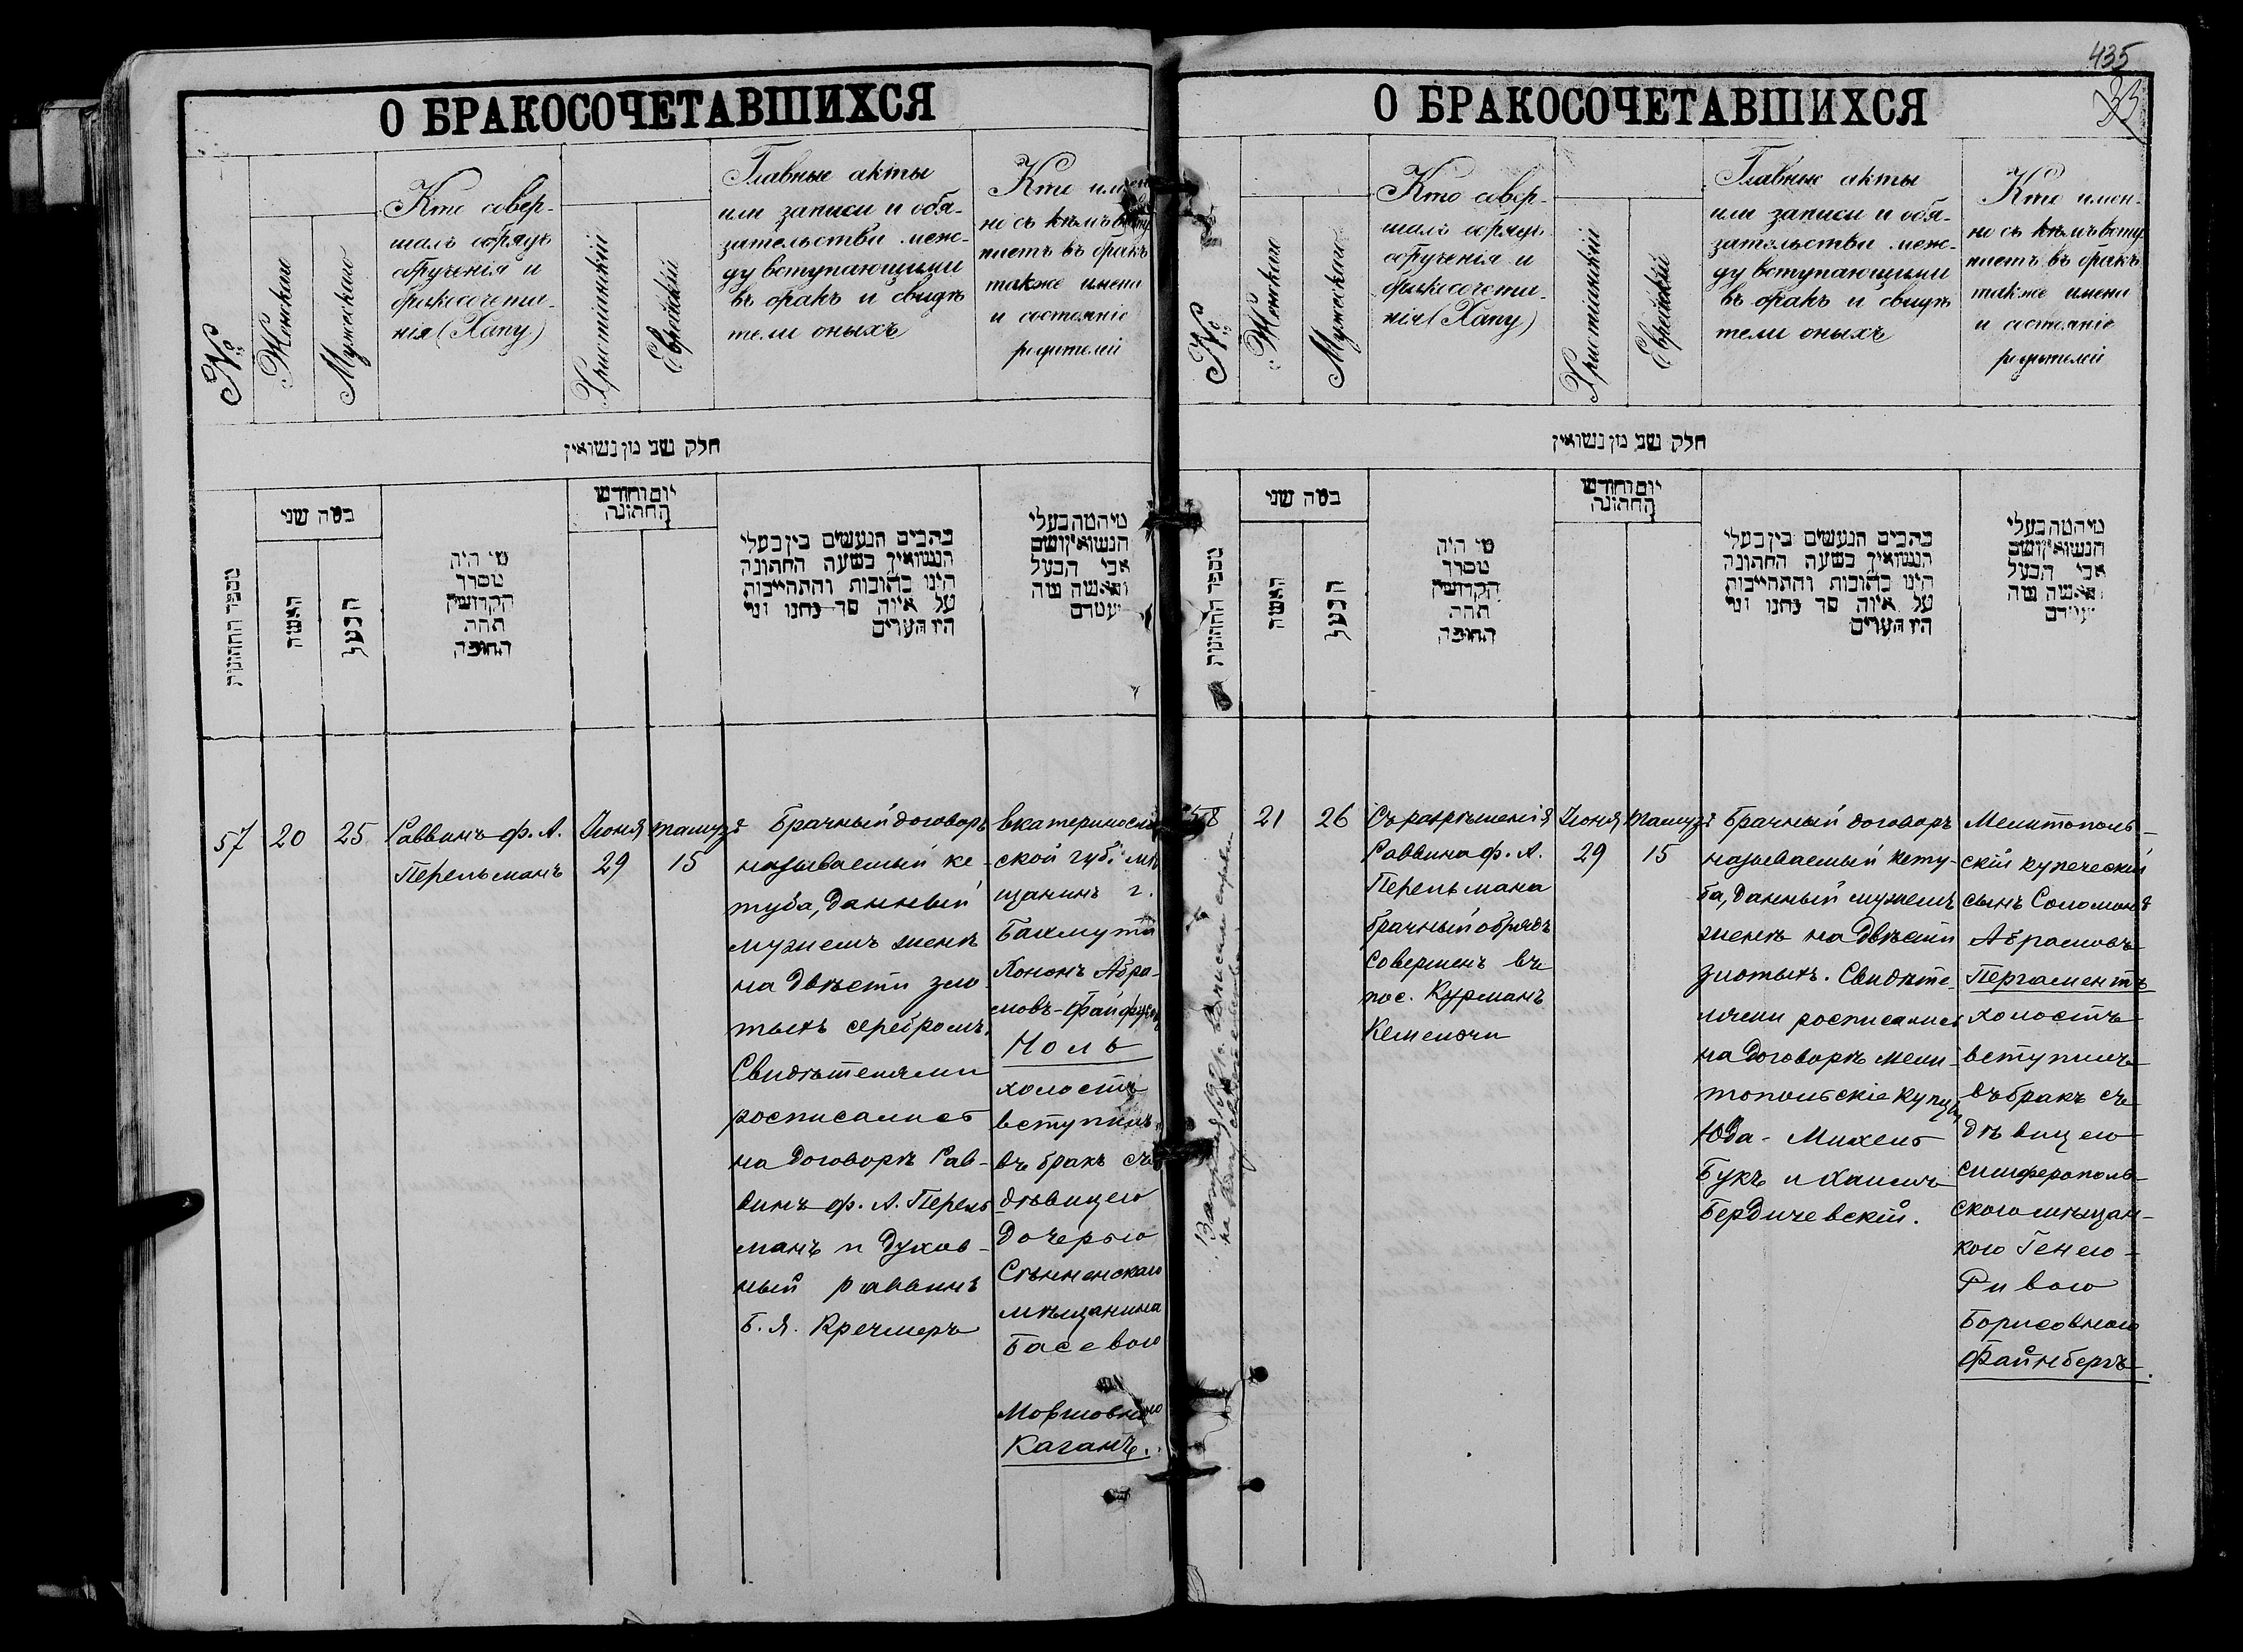 О БРАКОСОЧЕТАВШИХСЯ
№
Женская
Мужеская
Кто совер-
шалъ обрядъ
обрученія и
бракосочета-
нія (Хапу)
Христіанскій
Еврейскій
Главные акты
или записи и обя-
зательства меж-
ду вступающими
въ бракъ и свидѣ
тели оныхъ
Кто имен
но съ кѣмъ всту
паетъ въ бракъ
также имена
и состояніе
родителей
חלק שני מן נשואין
מספר החתונות
כמה שני
האשה
הבעל
מי היה
מסדר
הקדושין
תחת
החופה
יום וחודש
החתונה
כתבים הנעשים בין בעלי
הנשואין בשעת החתונה
היינו כתובות והתחייבות
על איזה סך נתנו ומי
היו העדים
מי המה בעלי
הנשואין ושם
אבי הבעל
והאשה מה
מעמדם
57
20
25
Раввинъ ф. А.
Перельманъ
Іюня
29
Тамузъ
15
Брачный договоръ
называемый ке-
туба, данный
мужемъ женѣ
на двѣсти зло-
тыхъ серебромъ.
Свидѣтелями
росписались
на договорѣ Рав-
винъ ф. А. Перель
манъ и духов-
ный раввинъ
Б. Я. Кречмеръ
Екатеринослав
ской губ. мѣ
щанинъ г.
Бахмута
Хононъ Абра-
мовъ-
Ноль
холостъ
вступилъ
въ бракъ съ
дѣвицею
дочерью
Сѣнненскаго
мѣщанина
Басевою
Мовшовною
Каганъ.
435
33
О БРАКОСОЧЕТАВШИХСЯ
№
Женская
Мужеская
Кто совер-
шалъ обрядъ
обрученія и
бракосочета-
нія (Хапу)
Христіанскій
Еврейскій
Главные акты
или записи и обя-
зательства меж-
ду вступающими
въ бракъ и свидѣ
тели оныхъ
Кто имен-
но съ кѣмъ всту
паетъ въ бракъ
также имена
и состояніе
родителей
חלק שני מן נשואין
מספר החתונות
כמה שני
האשה
הבעל
מי היה
מסדר
הקדושין
תחת
החופה
יום וחודש
החתונה
כתבים הנעשים בין בעלי
הנשואין בשעת החתונה
היינו כתובות והתחייבות
על איזה סך נתנו ומי
היו העדים
מי המה בעלי
הנשואין ושם
אבי הבעל
והאשה מה
מעמדם
58
21
26
Съ разрѣшенія
Раввина ф. А.
Перельмана
брачный обрядъ
совершенъ въ
пос. Курманъ
Кемельчи
Іюня
29
Тамузъ
15
Брачный договоръ
называемый кету-
ба, данный мужемъ
женѣ на двѣсти
злотыхъ. Свидѣте-
лями росписались
на договорѣ мели-
топольскіе купцы
Юда-Михель
Букъ и Хаимъ
Бердичевскій.
Мелитополь-
скій купеческій
сынъ Соломонъ
Абрамовъ
Пергаментъ
холостъ
вступилъ
въ бракъ съ
дѣвицею
симферополь
скою мѣщан-
кою Генею-
Ривою
Борисовною
Файнбергъ.